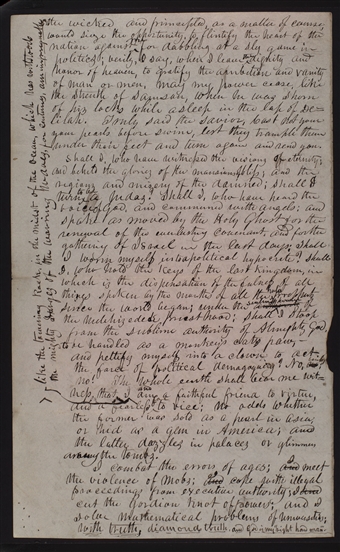 the wicked and principled, as a matter of course
would seize the opportunity, to flintify the heart of the
nation against me for dabbling at a sly game in
politics; verily, I say, when I leave the dignity and
honor of heaven, to gratify the ambition and vanity
of man or men, may my power cease, like
the strength of Samson, when he was shorn
of his locks while asleep in the lap of De-
lilah. Truly said the Savior, cast not your
your pearls before swine, lest they trample them
under their feet and turn again and rend you.
Shall I, who have witnessed the visions of eternity;
and beheld the glories of the mansions of bliss; and the
regions and misery of the damned; shall I
turn to be a Judas? Shall I, who have heard the
voice of God, and communed with angels; and
spake as moved by the Holy Ghost for the
renewal of the everlasting covenant, and for the
gathering of Israel in the last days; shall
I worm myself into a political hypocrite? Shall
I, who hold the keys of the last kingdom, in
which is the dispensation of the fulness of all
things spoken by the mouths of all the
since the world began; under the
the Melchizedek priesthood; shall I stoop
from the sublime authority of Almighty God,
to be handled as a monkey's cat's paw;
and pettify myself into a clown to act
the farce of political demagoguery? No,
no! The whole earth shall bear me wit-
ness, that I
like the towering Rock, in the midst of the ocean, which has withstood
the mighty surges of the warring waves, for centuries,
am a faithful friend to virtue,
and a fearless to vice; no odds whether
the former was sold as a pearl in Asia,
or hid as a gem in America; and
the latter dazzles in palaces or glimmers
among the tombs.
I combat the errors of ages; I meet
the violence of mobs; I cope with illegal
proceedings from executive authority; I
cut the Gordian knot of powers; and I
solve mathematical problems of universities;
with truth, diamond truth, and God is my right hand man.